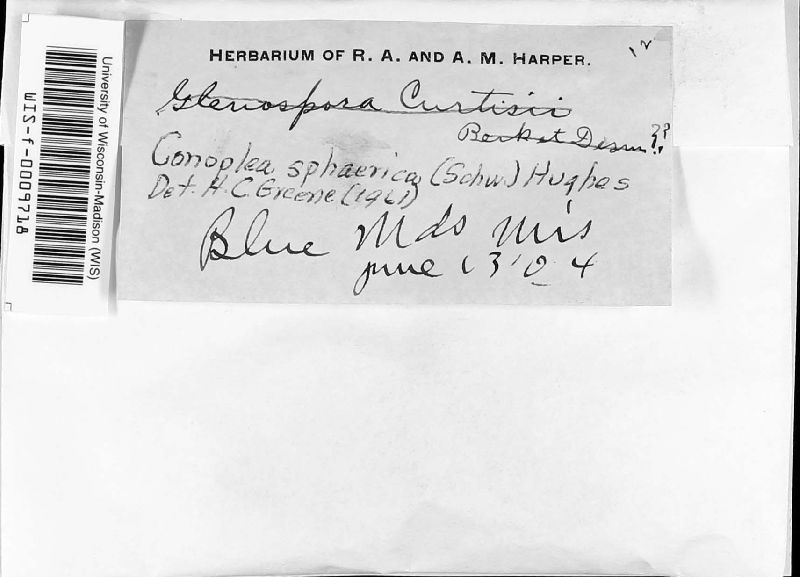 HERBARIUM OF R. A. AND A. M. HARPER.
Glenospora Curtisii
Berk et Desm ??
Conoplea sphaerica (Schw.) Hughes
Det. H. C. Greene (1961)
Blue Mds Wis
June 13 '04
University of Wisconsin-Madison (WIS)
WIS-f-0009718